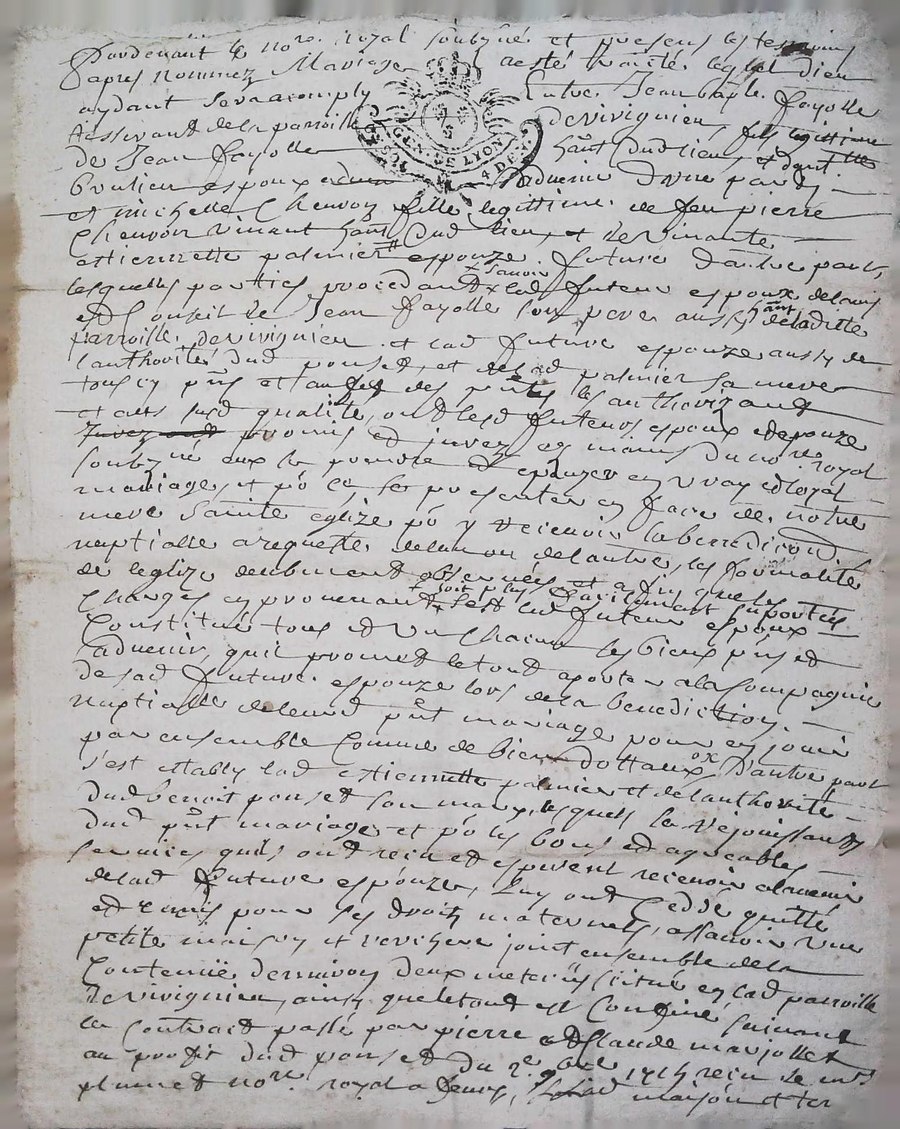 Pardevant le nore. royal soubzné et presens les tesmoins
apres nommez Mariage a esté traitté lequel Dieu
aydant sera acomply Entre Jean bapte. fayolle
de la parroisse de vivignieu fils legittime
GEN. DE LYON
4 DE
de Jean fayolle hant. dud lieu et
espoux advenir d'une part
et michelle Chervoy fille legittime de feu pierre
Chervoir vivant hant dud lieu, et de vivante
estiennette palmier espouze future d'autre part,
lesquelles parties procedant savoir led futeur espoux de l'avis
et Conseil de Jean fayolle son pere aussy hant de ladite
parroisse de vivignieu et lad future espouze aussy de
l'authorité dud ponset, et de lad palmier sa mere
tous cy pnts et au des pntes les authorizant
et aux susd qualité ont lesd futeurs espoux espouze
promis et jurez es mains du nore royal
soubzné eux se prendre et epouzer en vray et loyal
mariage, et po ce se presenter en face de notre
mere sainte eglize po y recevoir la benediction
nuptialle a requeste de l'un ou de l'autre, les formalité
de leglize deubment observées et afin que les
Charges en provenant soit plus facilement suportées
s'est led futeur espoux
Constitué tous et un Chacun ses biens pnts et
advenir, qu'il promet le tout aporter a la Compagnie
de sad future espouze lors de la benediction
nuptialle de leurd pnt mariage pour en jouir
par ensemble Comme de biens dottaux, d'autre part
s'est estably lad estiennette palmier et de l'authorité
dud benoit ponset son mary, lesquels la rejouissant
dud pnt mariage et po les bons et agreables
services quils ont receu et esperent recevoir a l'avenir
de lad future espouze, luy ont Cedde quitté
et remis pour ses droits maternels, assavoir une
petite maison et verchere joint ensemble de la
Contenüe denviron deux meterés scitué en lad parroisse
de vivignieu, ainsy que le tout est Confiné suivant
le Contract passé par pierre et Claude marjollet
au profit dud ponset du 2e 9bre 1715 receu le me
plunet nore royal a maison et ter